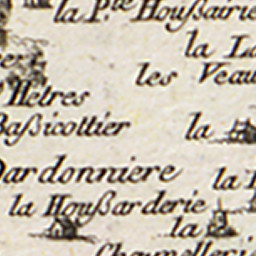 la P.te Houßairie
la
les Veau
Hetres
Baßicottier
la
Dardonniere
la
la Houßarderie
la